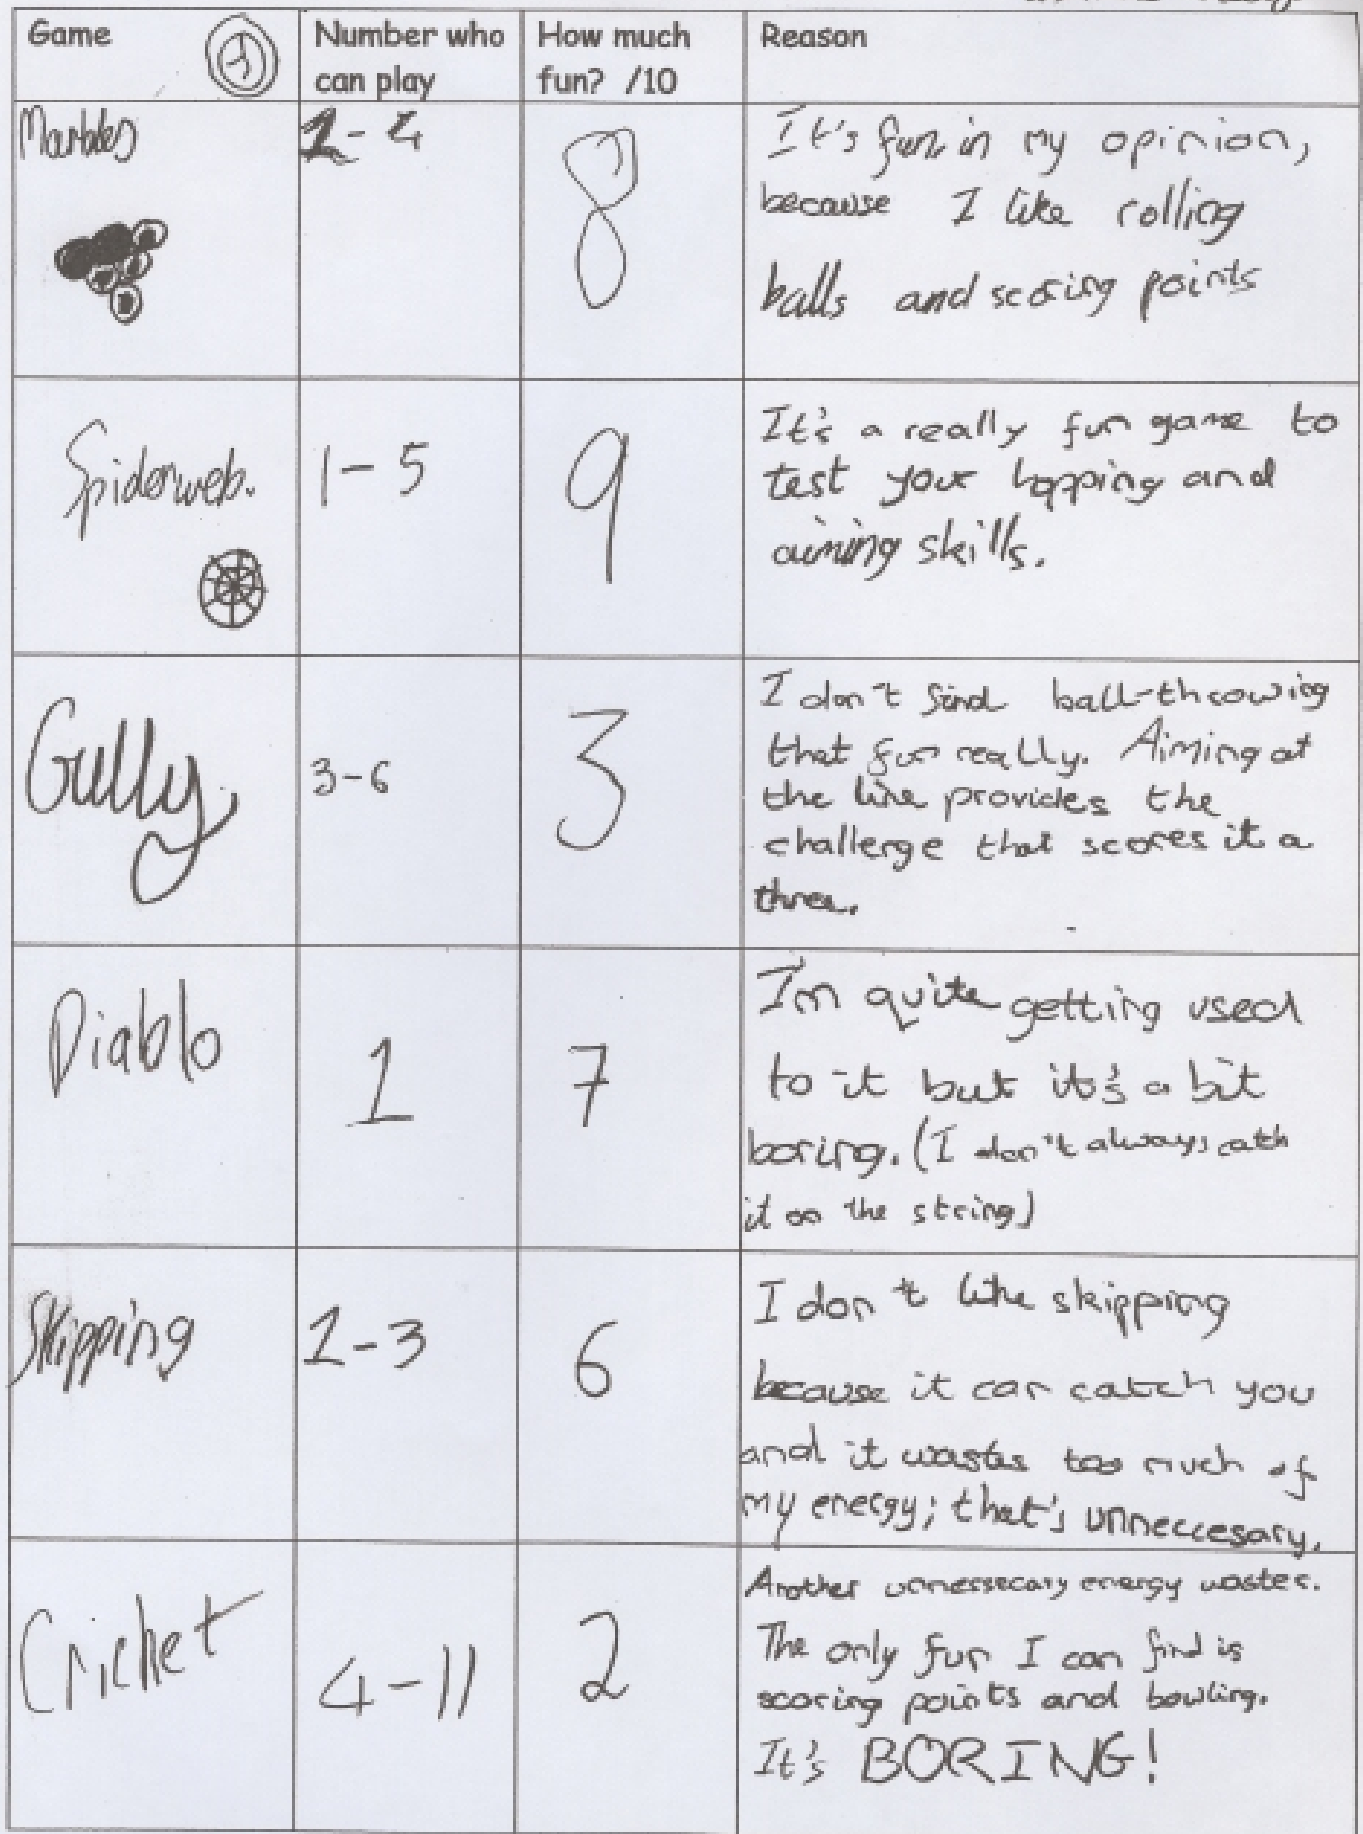 Game
Number who
can play
How much
fun? /10
Reason
Marbles
1 - 4
8
It's fun in my opinion,
because I like rolling
balls and scoring points
Spiderweb.
1 - 5
9
It's a really fun game to
test your hopping and
aiming skills.
Gully
3-6
3
I don't find ball-throwing
that fun really. Aiming at
the line provides the
challenge that scores it a
three.
Diablo
1
7
I'm quite getting used
to it but it's a bit
boring. (I don't always catch
it on the string)
Skipping
1-3
6
I don't like skipping
because it can catch you
and it wastes too much of
my energy; that's unneccesary.
Cricket
4-11
2
Another unnersecary energy waster.
The only fun I can find is
scoring points and bowling.
It's BORING!